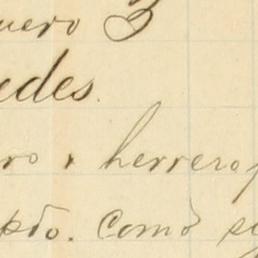 uero 3
edes.
ro y herrero
pdo. Como se